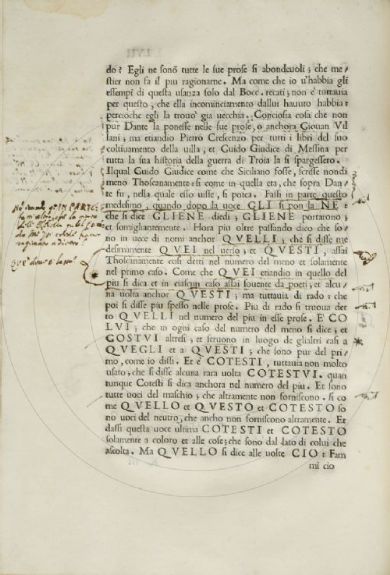 do? Egli ne sono tutte le sue prose si abondeuoli; che me/
stier non fa il piu ragionarne. Ma come che io u'habbia gli
essempi di questa usanza solo dal Bocc. recati; non è tuttauia
per questo, che ella incominciamento dallui hauuto habbia:
percioche egli la trouò gia uecchia. Conciosia cosa che non
pur Dante la ponesse nelle sue prose, o anchora Giouan Vil
lani; ma etiandio Pietro Crescenzo per tutti i libri del suo
coltiuamento della uilla, et Guido Giudice di Messina per
tutta la sua historia della guerra di Troia la si spargessero.
Ilqual Guido Giudice come che Siciliano fosse, scrisse nondi
meno Thoscanamente si come in quella eta, che sopra Dan/
te fu, nella quale esso uisse, si potea. Fassi in parte questo
medesimo, quando dopo la uoce GLI si pon la NE;
che si dice GLIENE diedi; GLIENE portarono;
et somigliantemente. Hora piu oltre passando dico che so/
no in uece di nomi anchor QVELLI; che si disse me
desimamente QVEI nel uerso; et QVESTI, assai
Thoscanamente cosi detti nel numero del meno et solamente
nel primo caso. Come che QVEI etiandio in quello del
piu si dica et in ciascun caso assai souente da poeti; et alcu/
na uolta anchor QVESTI; ma tuttauia di rado: che
poi si disse piu spesso nelle prose. Piu di rado si truoua der
to QVELLI nel numero del piu in esse prose. E CO
LVI; che in ogni caso del numero del meno si dice; et
COSTVI altresi; et seruono in luogo de glialtri casi a
QVEGLI et a QVESTI; che sono pur del pri/
mo, come io dissi. Et è COTESTI, tuttauia non molto
usato, che si disse alcuna rara uolta COTESTVI. quan
tunque Cotesti si dica anchora nel numero del piu. Et sono
tutte uoci del maschio; che altramente non forniscono. si co
me QVELLO et QVESTO et COTESTO so
no uoci del neutro, che ancho non forniscono altramente. Et
dassi questa uoce ultima COTESTI et COTESTO
solamente a coloro et alle cose; che sono dal lato di colui che
ascolta. Ma QVELLO si dice alle uolte CIO: Fam
mi cio
IN PARTE